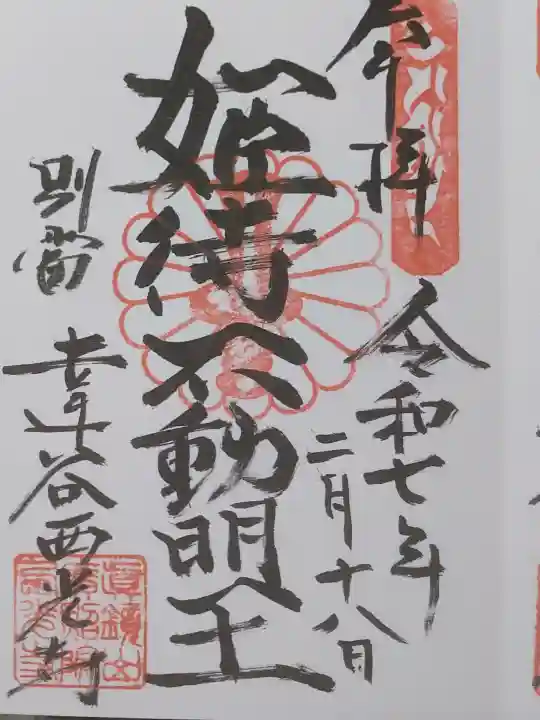 奉拝
令和七年
二月十八日
姫待不動明王
別當
達谷西光寺